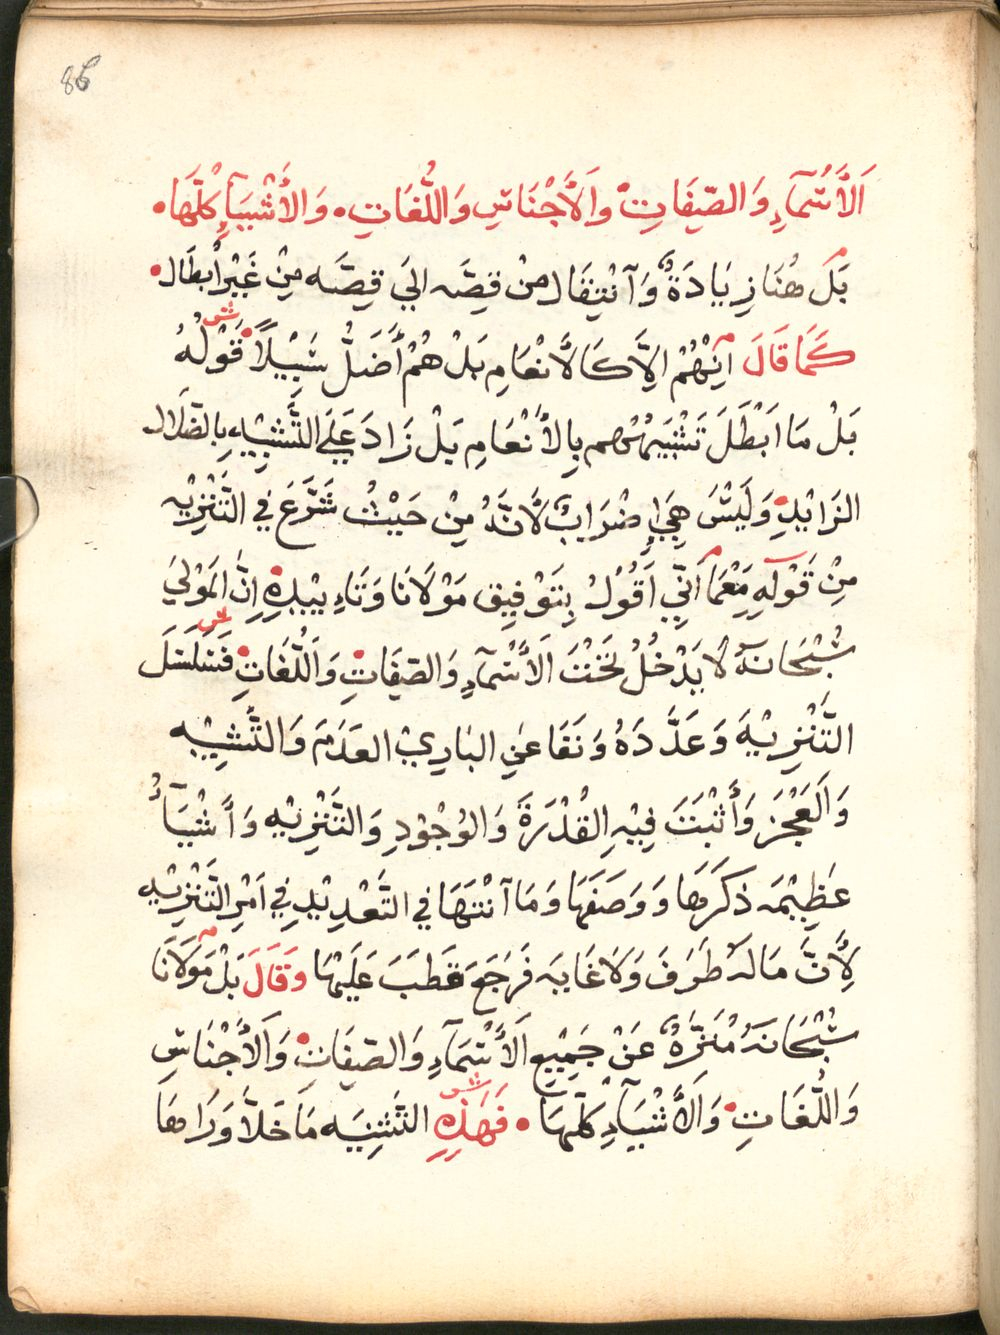 86
اَلْأَسْمَآءِ وَالصِّفَاتِ وَالْأَجْنَاسِ وَاللُّغَاتِ وَالْأَشْيَآءِ كُلِّهَا
بَل هُنَا زِيَادَةٌ وَآنْتِقَال مِنْ قِصَّه الي قِصَّه مِنْ غَيْرِ اِبْطَال
كَمَا قَالَ اِنْهُمْ اِلَّا كَالْأَنْعَامِ بَلْ هُمْ أَضَلُّ سَبِيْلًا قَوْلُهُ
بَلْ مَا اَبْطَلَ تَشْبِيهُهُم بِالأَنْعَامِ بَلْ زَادَ عَلَي التَّشْبِيْهِ بِالضَّلَال
الزَايِدِ وَلَيْسَ هِيَ اِضْرَابٌ لأَنَّهُ مِنْ حَيْثُ شَرَعَ فِي التَّنْزِيْه
مِنْ قَوْلِهِ اَنِّي اَقُوْلُ بِتَوْفِيقِ مَوْلَانَا وَتَاءيِيْدِهِ اِنَّ الْمَوْلَي
سُبْحَانَهُ لَا يَدْخُلُ تَحْتَ اَلْأَسْمَآءِ وَالصِّفَاتِ وَاَللُّغَاتِ فَسَلْسَلَ
التَّنْزِيْهَ وَعَدَّدَهُ وَنَفَا عَنِ البَارِيْ العَدَمَ وَالتَّشْبِيْه
وَالْعَجْزَ وَأَثْبَتَ فِيْهِ الْقُدْرَةَ وَالوُجُوْدِ وَالتَّنْزِيْهِ وَأَشْيَآءُ
عَظِيْمَه ذَكَرَهَا وَوَصَفَهَا وَمَا آنْتَهَا فِي التَّعْدِيْدِ فِي اَمْرِ التَّنْزِيْهِ
لأَنَّ مَا لَهُ طَرَفَ وَلَا غَايَه فَرَجَعَ قَطَبَ عَلَيْهَا وَقَالَ بَلْ مَوْلَانَا
سُبْحَانَهُ مُنَزَّهٌ عَنْ جَمِيْعِ اَلْأَسْمَآءِ وَالصِّفَاتِ وَالْأَجْنَاسِ
وَاللُّغَاتِ وَالْأَشْيَآءِ كُلِّهَا فَهَذِهِ التَّنْزِيَه مَا خَلَّا وَرَاهَا